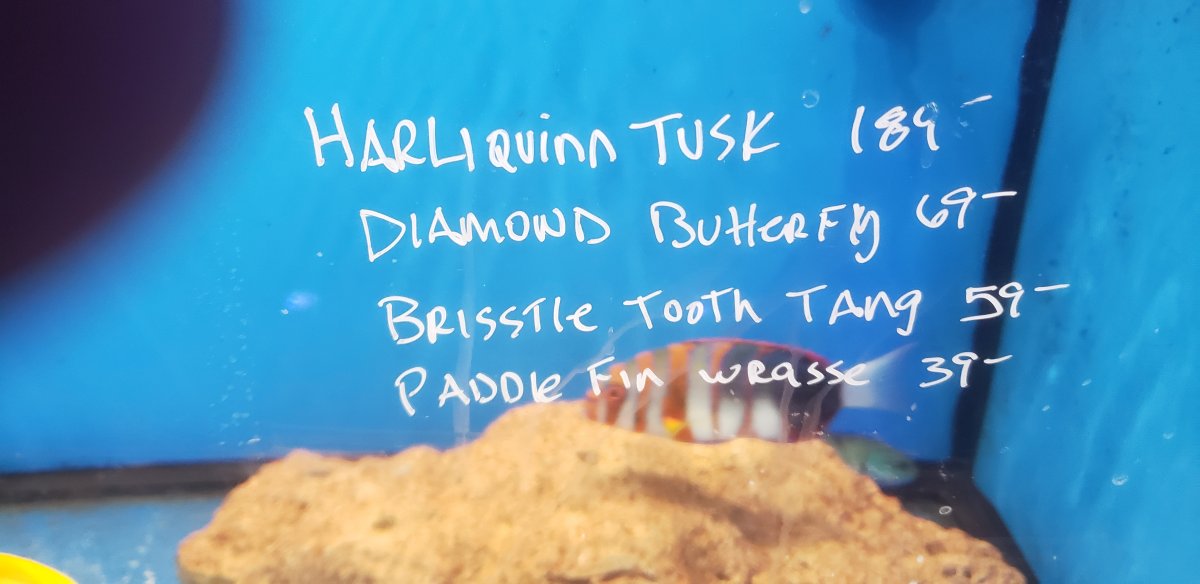 HARLIQUINN TUSK 189-
DIAMOND BUTTERFLY 69-
BRISSTLE TOOTH TANG 59-
PADDLE FIN WRASSE 39-